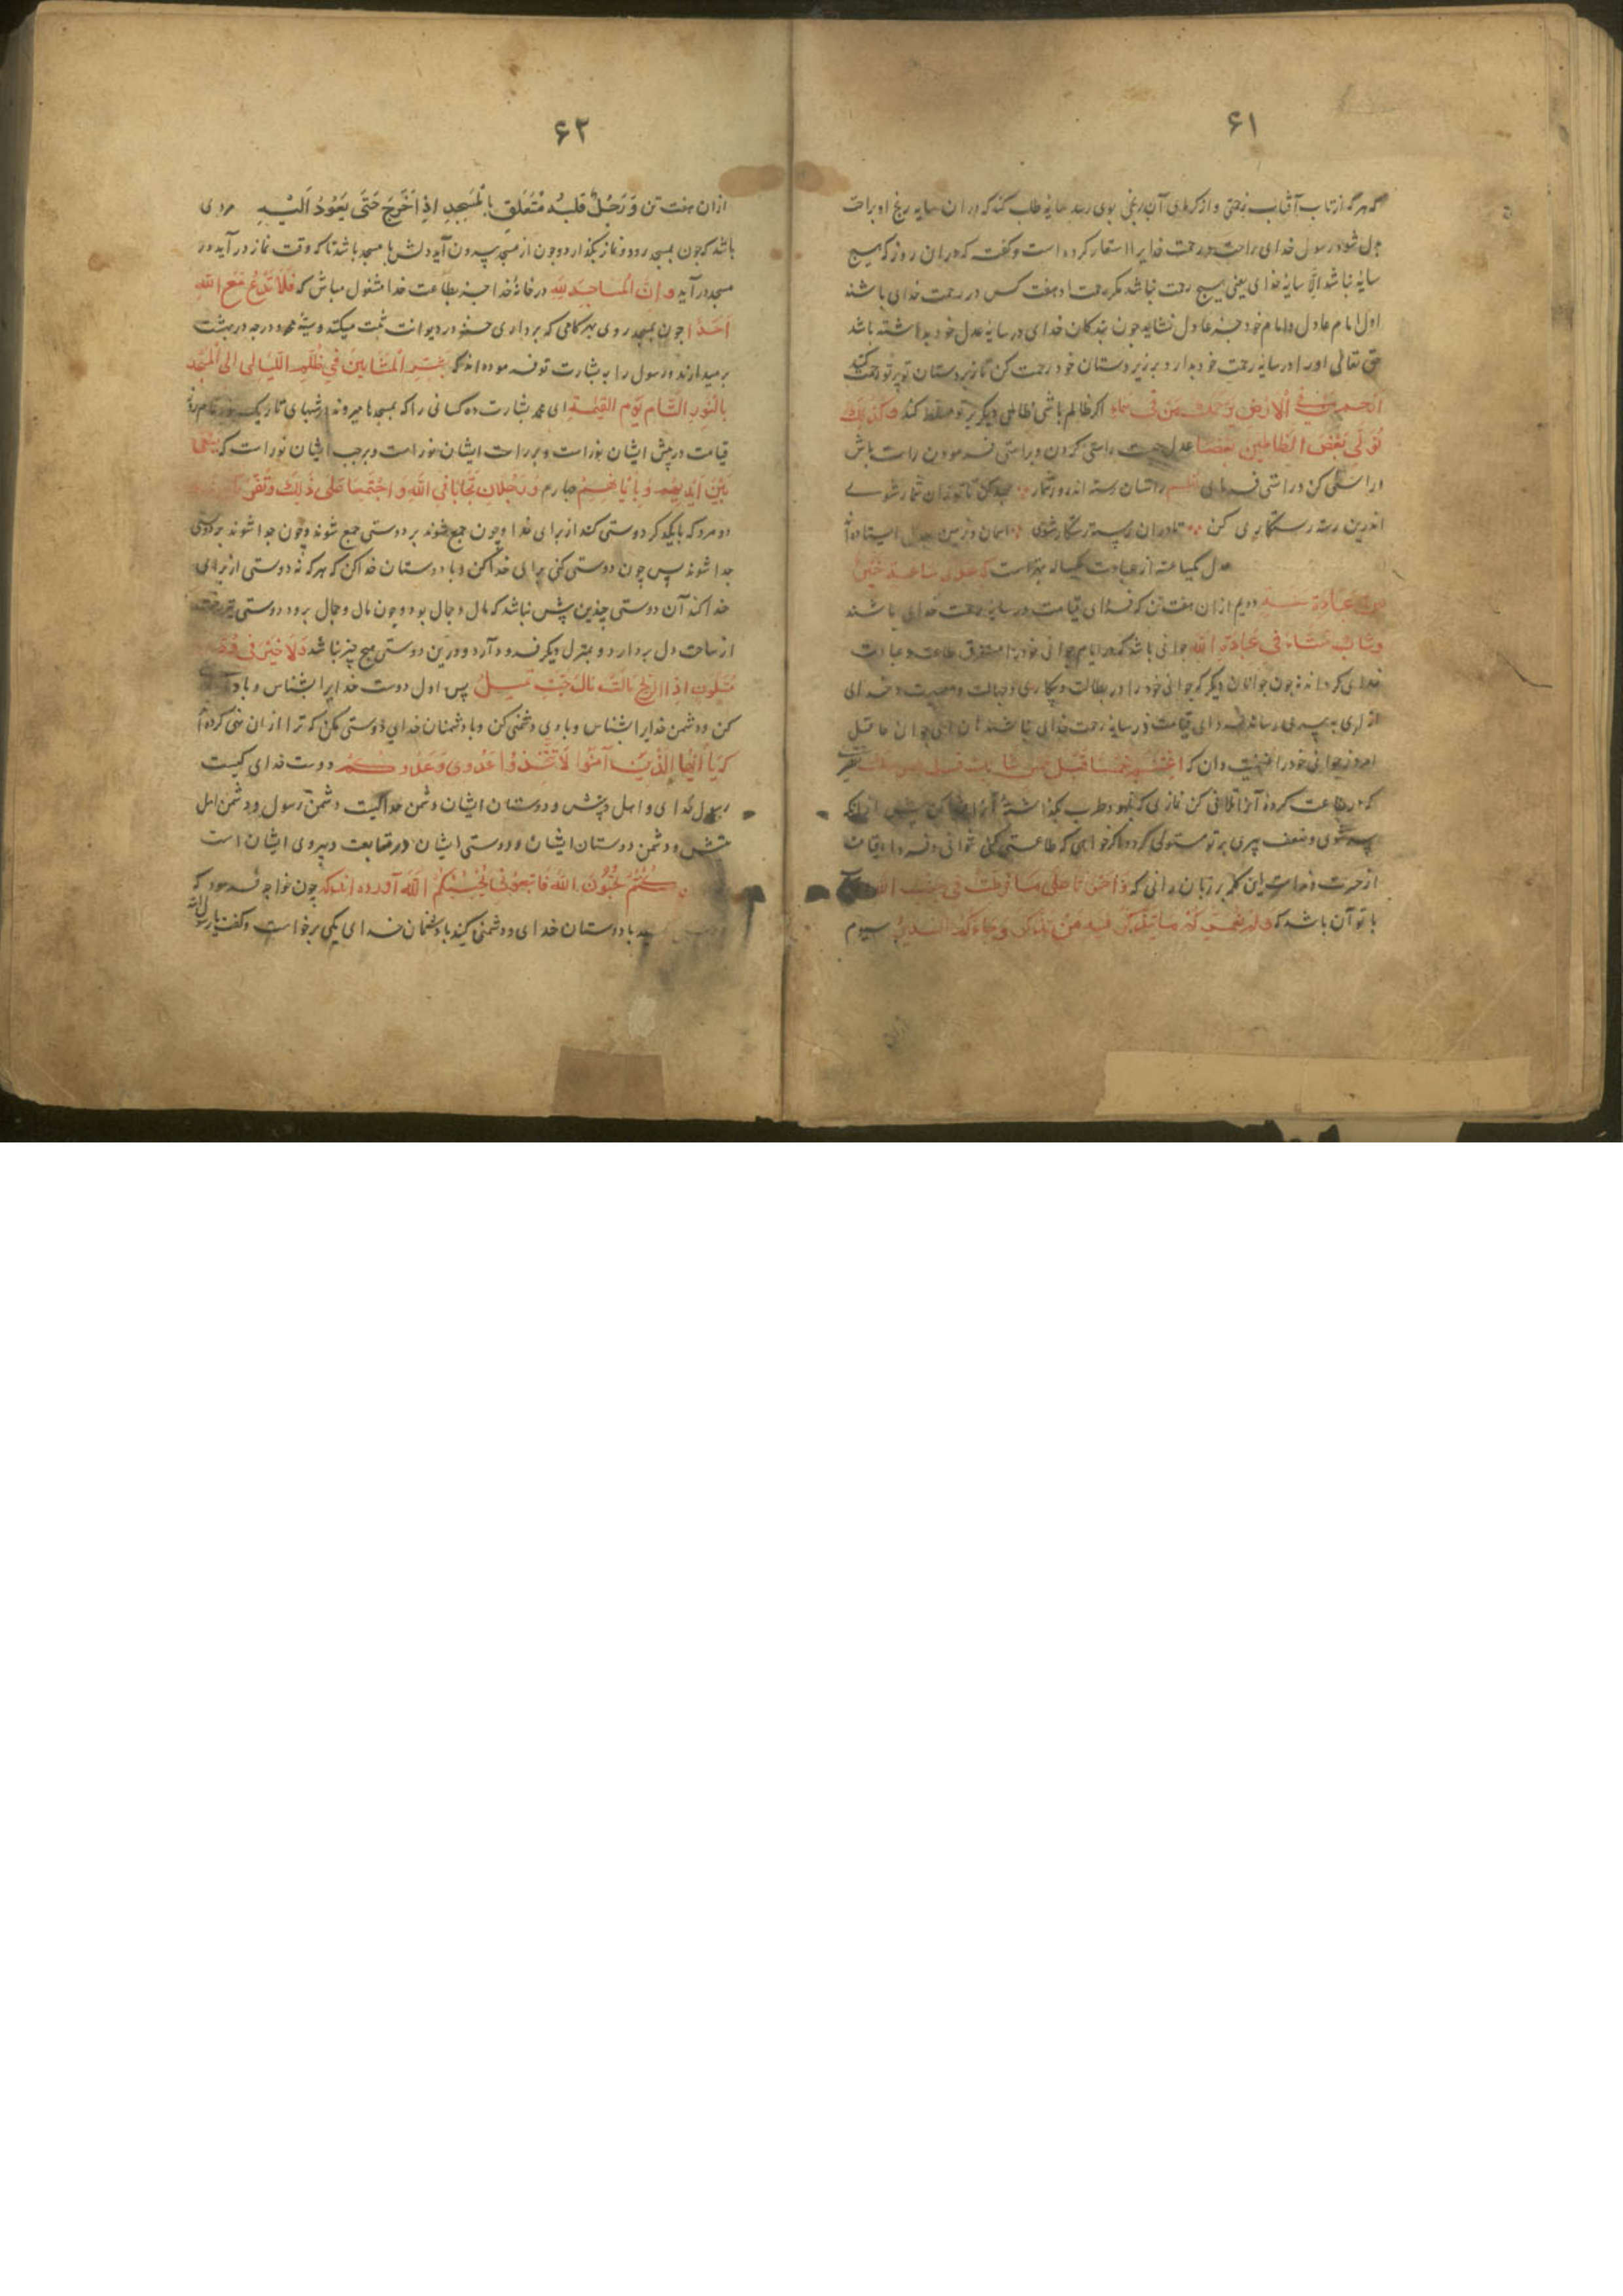 ۶۱
که هر که از تاب آفتاب و از گرمای آن رنجی بوی رسد سایهٔ طلب کند که در آن سایه رنج او براحت
بدل شود رسول خدای راحت و رحمت خدایرا استعار کرده است و گفت که در ان روز که هیچ
سایه نباشد الا سایهٔ خدای یعنی هیچ رحمت نباشد مکر رحمت او هفت کس در رحمت خدای باشند
اول امام عادل و امام خود جز عادل نشاید چون بندکان خدای در سایهٔ عدل خود بداشته باشد
حق تعالی او را در سایهٔ رحمت خود بدارد بر زیر دستان خود رحمت کن تا زبردستان تو بر تو رحمت کنند
ارحم من فی الارض یرحمک من فی السماء اکر ظالم باشی ظالمی دیکر بر تو مسلط کند و کذلک
نولی بعض الظالمین بعضا عدل چیست راستی کردن و براستی فرمودن راست باش
و راستی کن و راستی فرمای نظم راستان رسته اند روز شمار جهد کن تا تو زان شمار شوی
اندرین رسته رستکاری کن تا در ان رسته رستکار شوی اسمان و زمین بعدل ایستاده
عدل یکساعته از عبادت یکساله بهتر است که عدل ساعة خیر
من عبادة سنة دویم از ان هفت تن که فردای قیامت در سایهٔ رحمت خدای باشند
و شاب نشاء فی عبادة الله جوانی باشد که در ایام جوانی خود را مستغرق طاعت و عبادت
خدای کرداند نه چون جوانان دیکر که جوانی خود را در بطالت و بیکاری و جهالت و معصیت خدای
از لری به پیری رساند فردای قیامت در سایهٔ رحمت خدای نباشند هان ای جوان عاقل
امروز جوانی خود را غنیمت دان که اغتنم خمسا قبل خمس شبابک قبل هرمک تقصیری
که در طاعت کردهٔ آنرا تلافی کن نمازی که بلهو و طرب بکذاشتهٔ آنرا قضا کن پیش از انکه
پیر شوی و ضعف پیری بر تو مستولی کردد اکر خواهی که طاعتی کنی نتوانی و فردا قیامت
از حسرت و ندامت این کلمه بر زبان رانی که وا حسرتا علی ما فرطت فی جنب الله
با تو آن باشد که اولم نعمرکم ما یتذکر فیه من تذکر و جاءکم النذیر سیوم
۶۲
از ان هفت تن و رجل قلبه متعلق بالمسجد اذا خرج حتی یعود الیه مردی
باشد که چون بمسجد رود و نماز بکذارد و چون از مسجد بیرون آید دلش با مسجد باشد تا که وقت نماز در آید و در
مسجد در آید و ان المساجد لله در خانهٔ خدا جز بطاعت خدا مشغول مباش که فلا تدع مع الله
احدا چون بمسجد روی بهر کامی که برداری حسنه در دیوانت ثبت میکنند و سیئه محو و درجه در بهشت
بر میدارند و رسول را به بشارت تو فرموده اند که بشر المشائین فی ظلم اللیالی الی المسجد
بالنور التام یوم القیمة ای محمد بشارت ده کسانی را که بمسجدها میروند در شبهای تاریک بنور تمام روز
قیامت در پیش ایشان نور است و بر راست ایشان نور است و بر چپ ایشان نور است که یسعی
بین ایدیهم و بایمانهم چهارم و رجلان تحابا فی الله و اجتمعا علی ذلک و تفرقا
دو مرد که با یکدکر دوستی کنند از برای خدا و چون جمع شوند بر دوستی جمع شوند و چون جدا شوند بر دوستی
جدا شوند پس چون دوستی کنی برای خدا کن و با دوستان خدا کن که هر که نه دوستی از برای
خدا کند آن دوستی چندین پیش نباشد که مال و جمال بود و چون مال و جمال برود دوستی نیز رخت
از ساحت دل بردارد و بمنزل دیکر فرود آرد و درین دوستی هیچ چیز نباشد ولا خیر فی ود
متلون اذا الریح مالت مال حیث تمیل پس اول دوست خدایرا بشناس و با
کن و دشمن خدایرا بشناس و با وی دشمنی کن و با دشمنان خدای دوستی مکن که ترا از ان نهی کرده
که یا ایها الذین آمنوا لا تتخذوا عدوی و عدوکم دوست خدای کیست
رسول خدای و اهل بیتش و دوستان ایشان دشمن خدا کیست دشمن رسول و دشمن اهل
بیتش و دشمن دوستان ایشان و دوستی ایشان در متابعت و پیروی ایشان است
کنتم تحبون الله فاتبعونی یحببکم الله آورده اند که چون خواجه فرمود که
با دوستان خدای و دشمنی کنید با دشمنان خدای یکی برخواست و کفت یا رسول الله